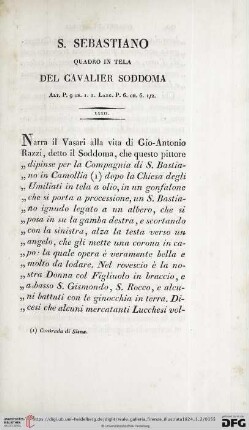 S. SEBASTIANO
QUADRO IN TELA
DEL CAVALIER SODDOMA
ALT. P. 9 on. 1. 2. LARG. P. 6. on. 6. 1/2.
XXXII.
Narra il Vasari alla vita di Gio-Antonio
Razzi, detto il Soddoma, che questo pittore
„ dipinse per la Compagnia di S. Bastia-
„ no in Camollia (1) dopo la Chiesa degli
„ Umiliati in tela a olio, in un gonfalone
„ che si porta a processione, un S. Bastia-
„ no ignudo legato a un albero, che si
„ posa in su la gamba destra, e scortando
„ con la sinistra, alza la testa verso un
„ angelo, che gli mette una corona in ca-
„ po: la quale opera è veramente bella e
„ molto da lodare. Nel rovescio è la no-
„ stra Donna col Figliuolo in braccio, e
„ a basso S. Gismondo, S. Rocco, e alcu-
„ ni battuti con le ginocchia in terra. Di-
„ cesi che alcuni mercatanti Lucchesi vol-
(1) Contrada di Siena.
UNIVERSITÄTS-
BIBLIOTHEK
HEIDELBERG
Gefördert durch die
DFG